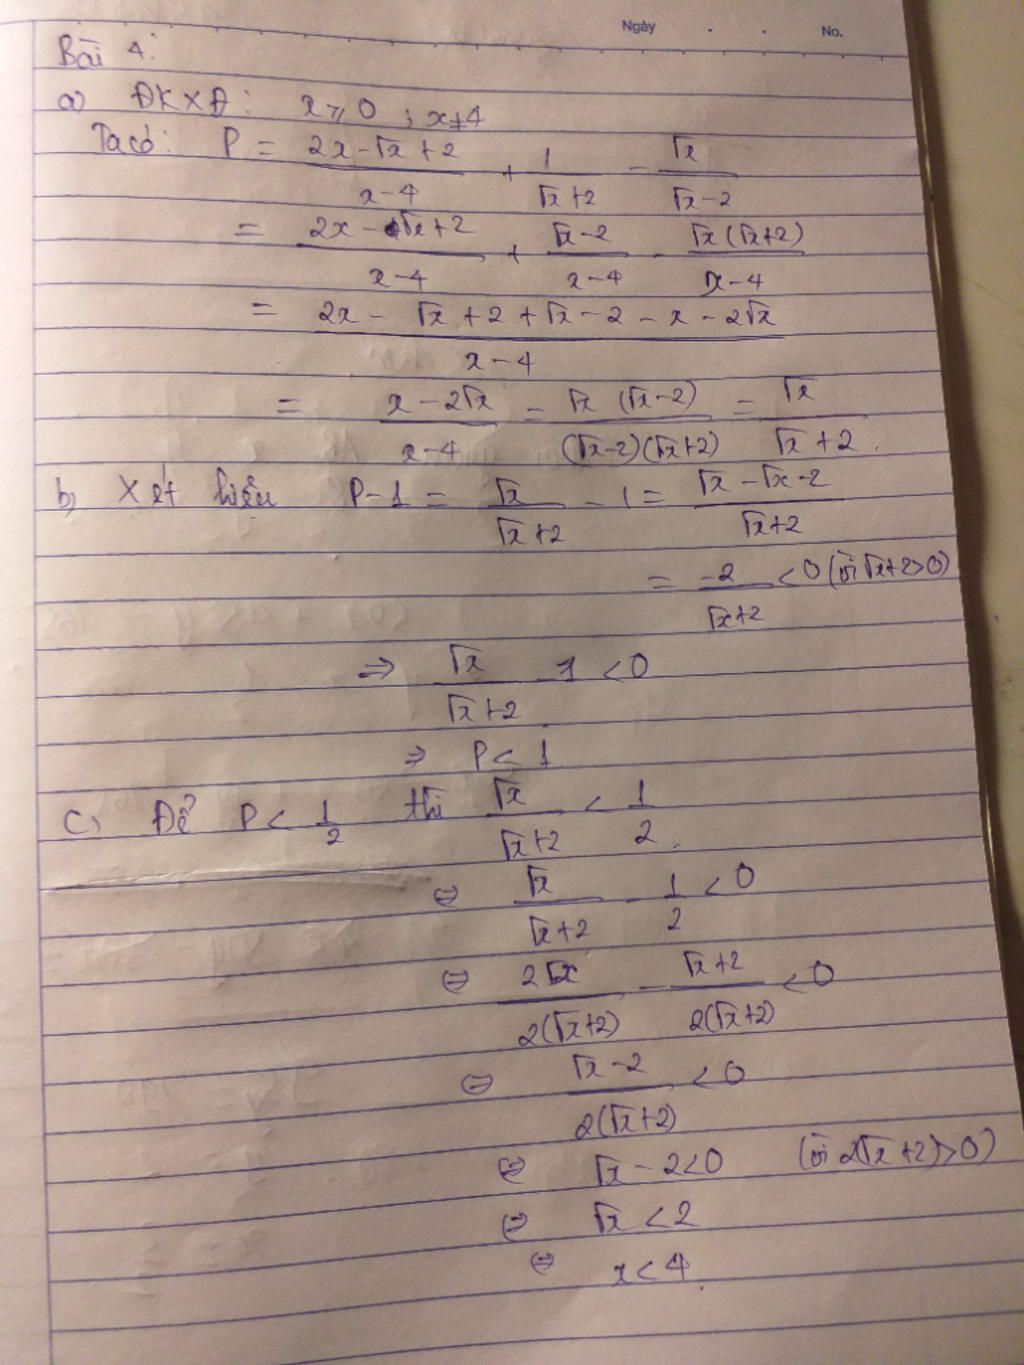 Ngày . . No.
Bài 4:
a) ĐKXĐ: x ⩾ 0 ; x ≠ 4
Ta có: P = (2x - √x + 2)/(x - 4) + 1/(√x + 2) - √x/(√x - 2)
= (2x - √x + 2)/(x - 4) + (√x - 2)/(x - 4) - √x(√x + 2)/(x - 4)
= (2x - √x + 2 + √x - 2 - x - 2√x)/(x - 4)
= (x - 2√x)/(x - 4) = √x(√x - 2)/((√x - 2)(√x + 2)) = √x/(√x + 2).
b) Xét hiệu P - 1 = √x/(√x + 2) - 1 = (√x - √x - 2)/(√x + 2)
= -2/(√x + 2) < 0 (vì √x + 2 > 0)
⇒ √x/(√x + 2) - 1 < 0
⇒ P < 1
c) Để P < 1/2 thì √x/(√x + 2) < 1/2.
⇔ √x/(√x + 2) - 1/2 < 0
⇔ 2√x/(2(√x + 2)) - (√x + 2)/(2(√x + 2)) < 0
⇔ (√x - 2)/(2(√x + 2)) < 0
⇔ √x - 2 < 0 (vì 2(√x + 2) > 0)
⇔ √x < 2
⇔ x < 4.